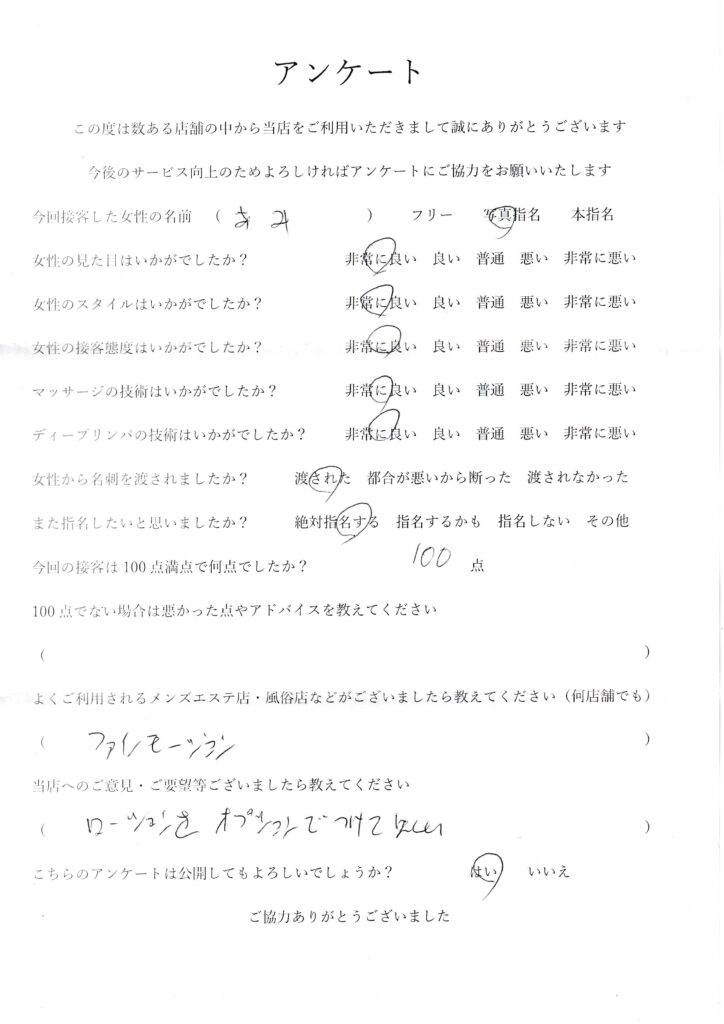 アンケート
この度は数ある店舗の中から当店をご利用いただきまして誠にありがとうございます
今後のサービス向上のためよろしければアンケートにご協力をお願いいたします
今回接客した女性の名前 ( あみ ) フリー 写真指名 本指名
女性の見た目はいかがでしたか? 非常に良い 良い 普通 悪い 非常に悪い
女性のスタイルはいかがでしたか? 非常に良い 良い 普通 悪い 非常に悪い
女性の接客態度はいかがでしたか? 非常に良い 良い 普通 悪い 非常に悪い
マッサージの技術はいかがでしたか? 非常に良い 良い 普通 悪い 非常に悪い
ディープリンパの技術はいかがでしたか? 非常に良い 良い 普通 悪い 非常に悪い
女性から名刺を渡されましたか? 渡された 都合が悪いから断った 渡されなかった
また指名したいと思いましたか? 絶対指名する 指名するかも 指名しない その他
今回の接客は100点満点で何点でしたか? 100 点
100点でない場合は悪かった点やアドバイスを教えてください
( )
よくご利用されるメンズエステ店・風俗店などがございましたら教えてください (何店舗でも)
( ファインモーション )
当店へのご意見・ご要望等ございましたら教えてください
( ローションを オプションで つけて欲しい )
こちらのアンケートは公開してもよろしいでしょうか? はい いいえ
ご協力ありがとうございました